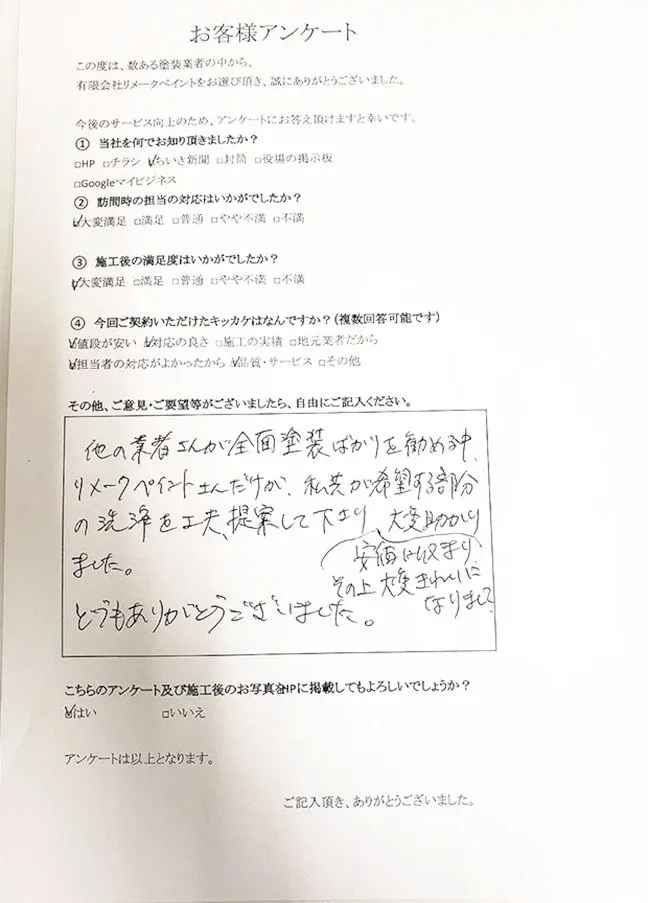 お客様アンケート
この度は、数ある塗装業者の中から、
有限会社リメークペイントをお選び頂き、誠にありがとうございました。
今後のサービス向上のため、アンケートにお答え頂けますと幸いです。
① 当社を何でお知り頂きましたか？
□HP □チラシ ☑ちいき新聞 □封筒 □役場の掲示板
□Googleマイビジネス
② 訪問時の担当の対応はいかがでしたか？
☑大変満足 □満足 □普通 □やや不満 □不満
③ 施工後の満足度はいかがでしたか？
☑大変満足 □満足 □普通 □やや不満 □不満
④ 今回ご契約いただけたキッカケはなんですか？（複数回答可能です）
☑値段が安い ☑対応の良さ □施工の実績 □地元業者だから
☑担当者の対応がよかったから ☑品質・サービス □その他
その他、ご意見・ご要望等がございましたら、自由にご記入ください。
他の業者さんが全面塗装ばかりを勧める中、
リメークペイントさんだけが、私共が希望する部分
の洗浄を工夫、提案して下さり、大変助かり
ました。
安価に収まり、
その上大変きれいに
なりまして
どうもありがとうございました。
こちらのアンケート及び施工後のお写真をHPに掲載してもよろしいでしょうか？
☑はい □いいえ
アンケートは以上となります。
ご記入頂き、ありがとうございました。